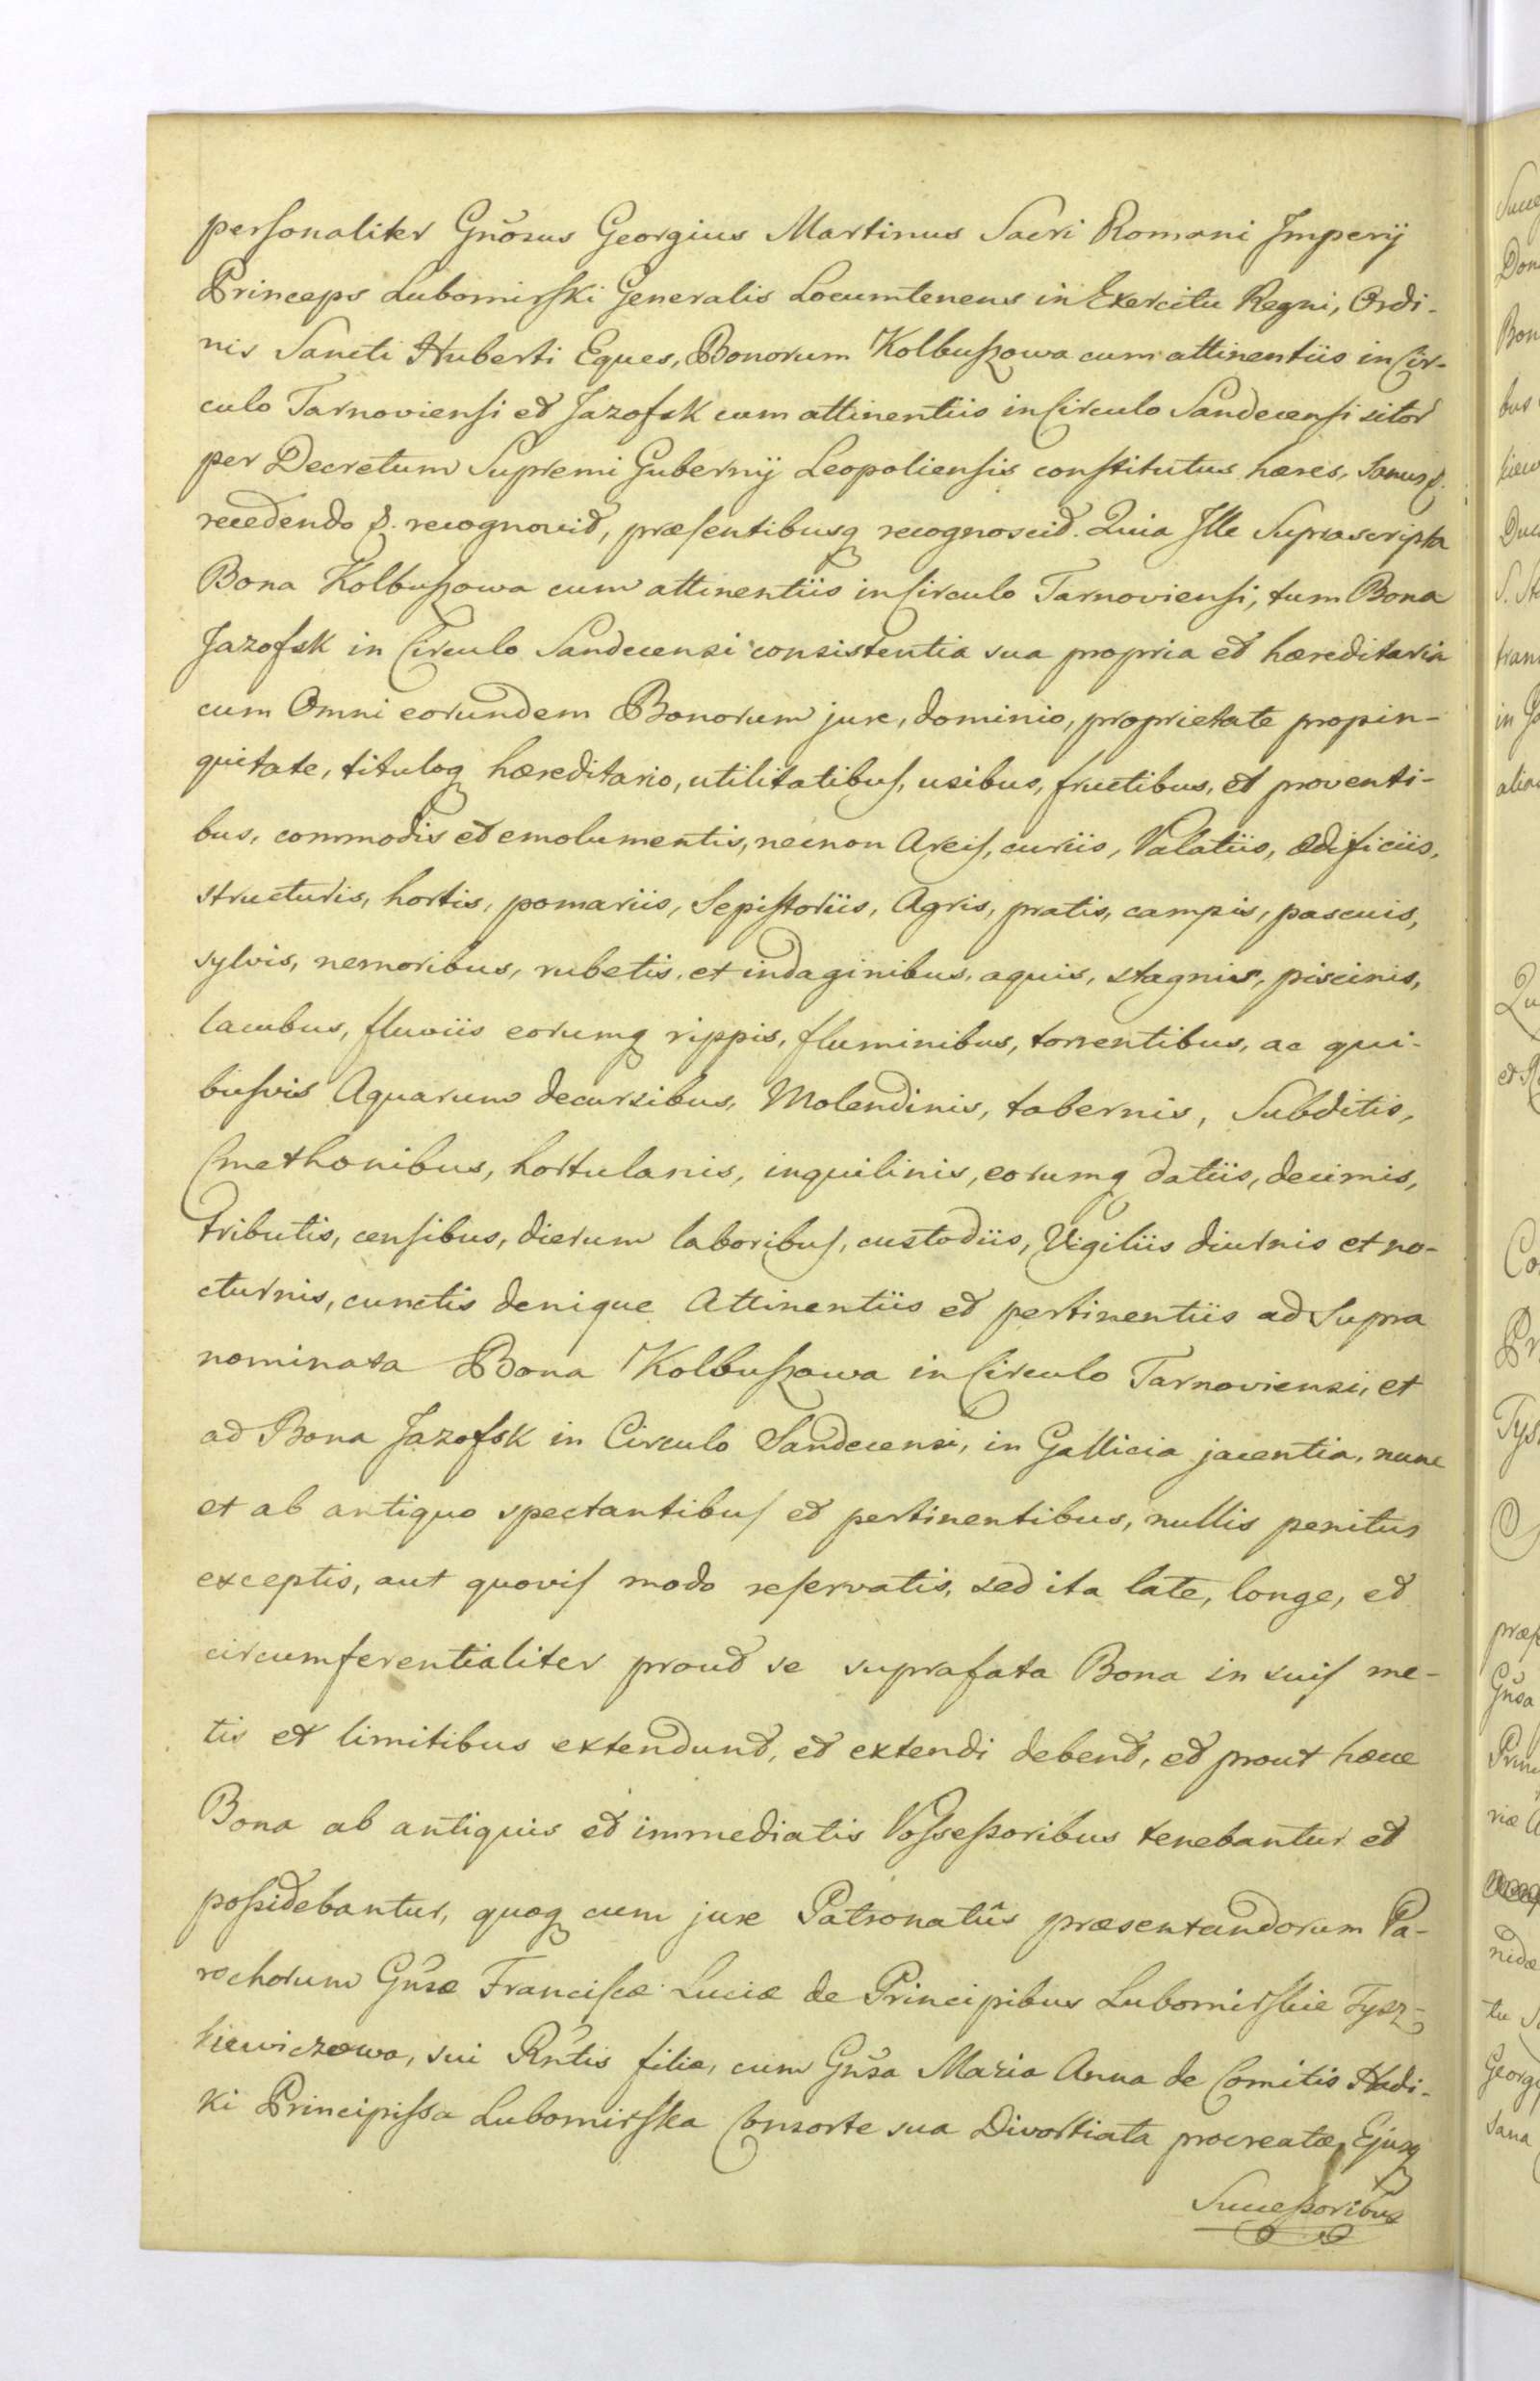 personaliter Gñosus Georgius Martinus Sacri Romani Imperÿ
Princeps Lubomirski Generalis Locumtenens in Exercitu Regni, Ordi-
nis Sancti Huberti Eques, Bonorum Kolbuszowa cum attinentiis in Cir-
culo Tarnoviensi et Jazofsk cum attinentiis in Circulo Sandecensi sitor
per Decretum Supremi Gubernÿ Leopoliensis constitutus hæres, Sanus p.
recedendo p. recognovit, præsentibusq recognoscit. Quia Ille Suprascripta
Bona Kolbuszowa cum attinentiis in Circulo Tarnoviensi, tum Bona
Jazofsk in Circulo Sandecensi consistentia sua propria et hæreditaria
cum Omni eorundem Bonorum jure, dominio, proprietate propin-
quitate, tituloq hæreditario, utilitatibus, usibus, fructibus, et proventi-
bus, commodis et emolumentis, necnon Areis, curiis, Palatiis, Ædificiis,
structuris, hortis, pomariis, Sepistoriis, Agris, pratis, campis, pascuis,
sylvis, nemoribus, rubetis, et indaginibus, aquis, stagnis, piscinis,
lacubus, fluviis eorumq rippis, fluminibus, torrentibus, ac qui-
busvis Aquarum decursibus, Molendinis, tabernis, Subditis,
Cmethonibus, hortulanis, inquilinis, eorumq datiis, decimis,
tributis, censibus, dierum laboribus, custodiis, Vigiliis diurnis et no-
cturnis, cunctis denique Attinentiis et pertinentiis ad Supra
nominata Bona Kolbuszowa in Circulo Tarnoviensi, et
ad Bona Jazofsk in Circulo Sandecensi, in Gallicia jacentia, nunc
et ab antiquo spectantibus et pertinentibus, nullis penitus
exceptis, aut quovis modo reservatis, sed ita late, longe, et
circumferentialiter prout se suprafata Bona in suis me-
tis et limitibus extendunt, et extendi debent, et prout hæcce
Bona ab antiquis et immediatis Possessoribus tenebantur et
possidebantur, quoq cum jure Patronatûs præsentandorum Pa-
rochorum Gñsæ Franciscæ Luciæ de Principibus Lubomirskie Tysz-
kiewiczowa, sui Rñtis filiæ, cum Gñsa Maria Anna de Comitis Hadi-
ki Principissa Lubomirska Consorte sua Divortiata procreatæ, Ejusq
Successoribus